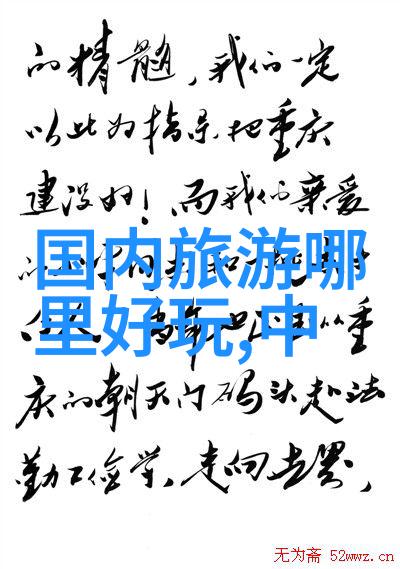 的精髓，我们一定
以此为指导把重庆
建设好！而我们亲爱
国内旅游哪
里好玩,中
从重
庆的朝天门码头赴法
勤工俭学，走向世界，
无为斋 52wwz.cn